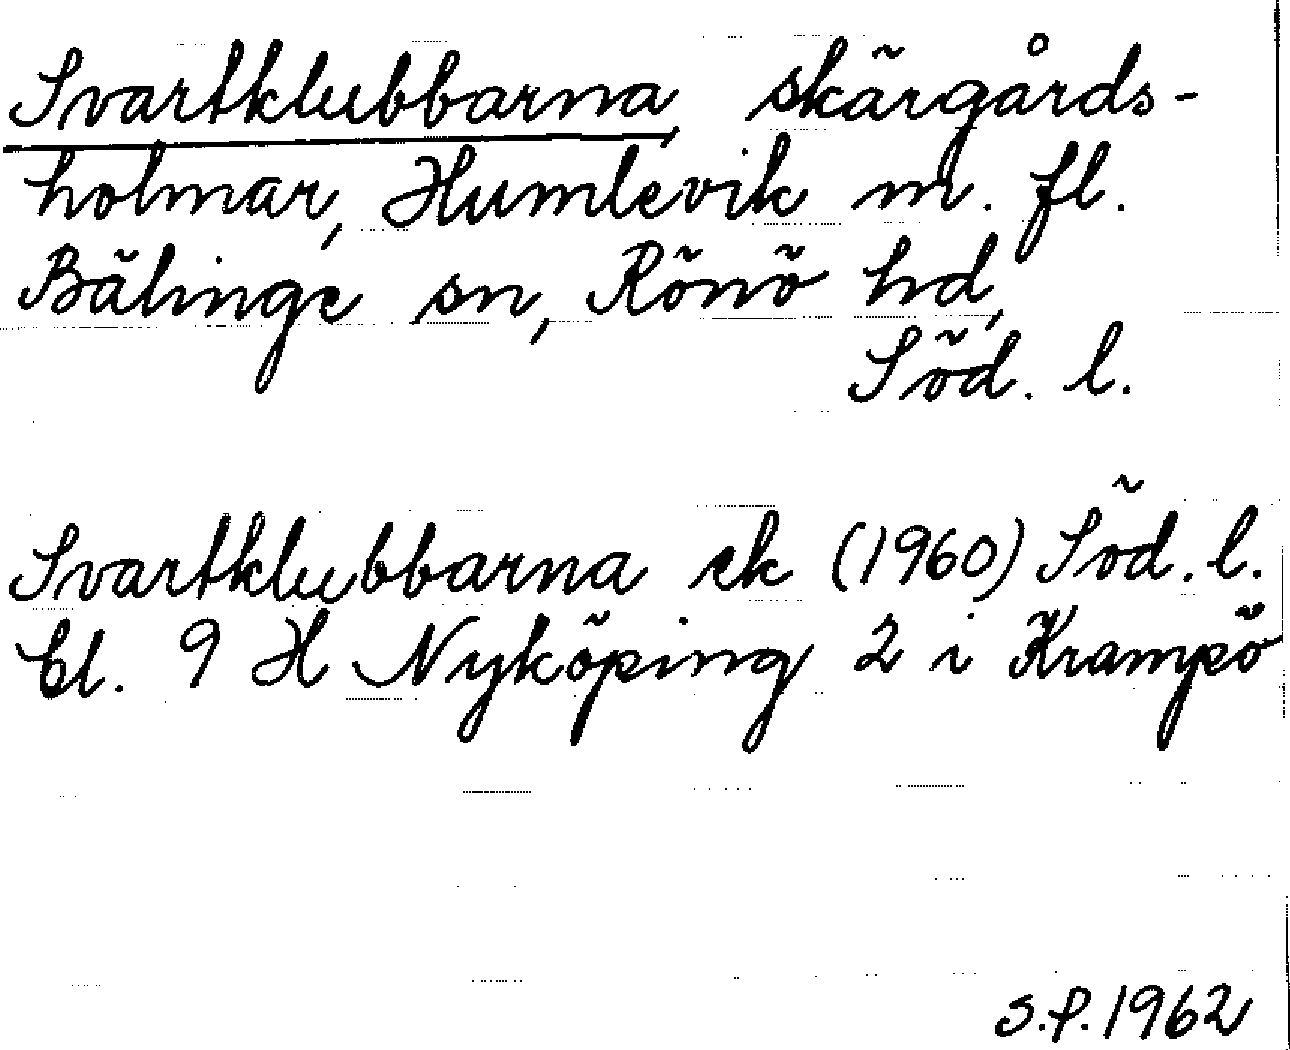 Svartklubbarna, skärgårds-
holmar, Humlevik m. fl.
Bälinge sn, Rönö hd,
Söd. l.
Svartklubbarna ek (1960) Söd. l.
bl. 9 H Nyköping 2 i Krampö
S.P. 1962